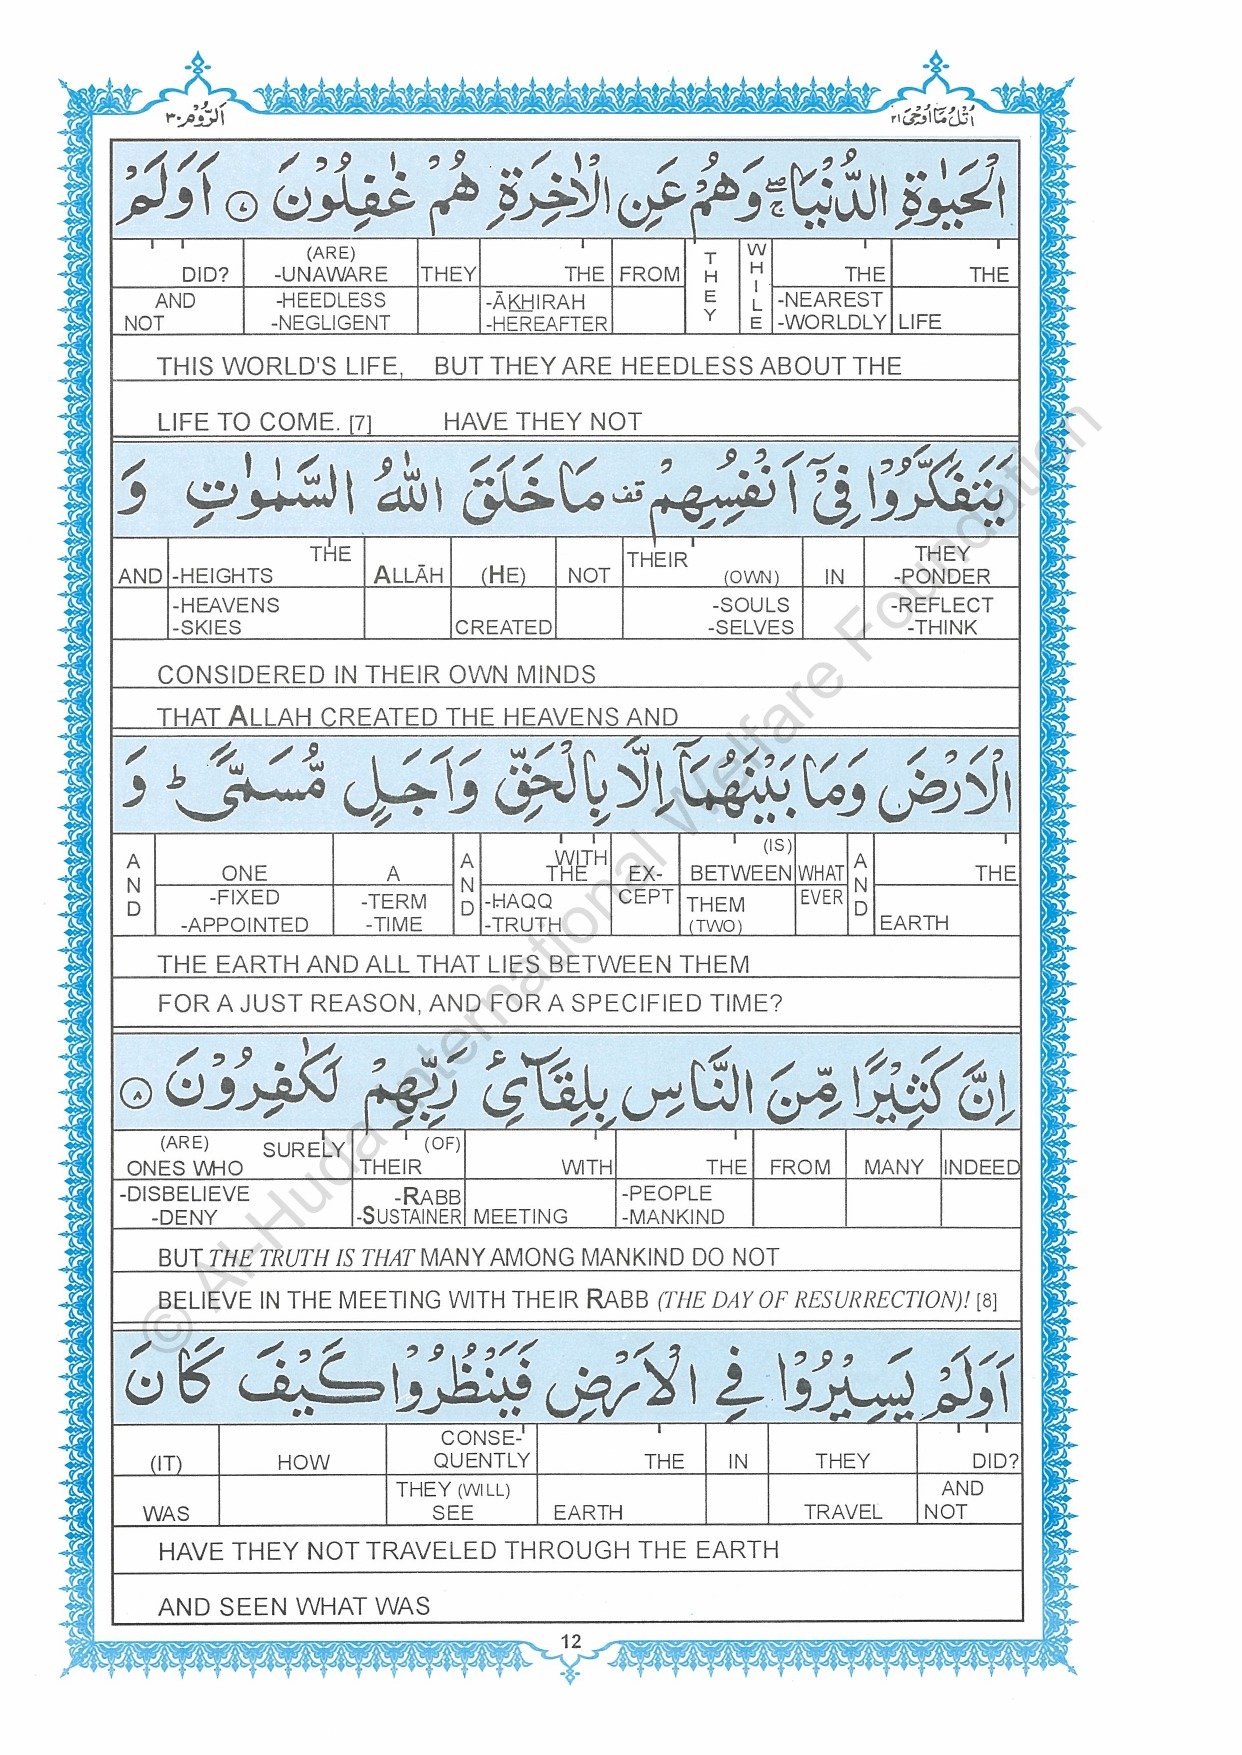 اَلرُّوْم ٣٠
اُتْلُ مَآ اُوْحِیَ ٢١
الْحَیٰوةِ الدُّنْیَا ۖۚ وَهُمْ عَنِ الْاٰخِرَةِ هُمْ غٰفِلُوْنَ ﴿٧﴾ اَوَلَمْ
DID? (ARE) -UNAWARE THEY THE FROM THEY WHILE THE THE
AND NOT -HEEDLESS -NEGLIGENT -ĀKHIRAH -HEREAFTER -NEAREST -WORLDLY LIFE
THIS WORLD'S LIFE, BUT THEY ARE HEEDLESS ABOUT THE
LIFE TO COME. [7] HAVE THEY NOT
یَتَفَكَّرُوْا فِیْۤ اَنْفُسِهِمْ ۫ قف مَا خَلَقَ اللّٰهُ السَّمٰوٰتِ وَ
AND THE -HEIGHTS ALLĀH (HE) NOT THEIR (OWN) IN THEY -PONDER
-HEAVENS -SKIES CREATED -SOULS -SELVES -REFLECT -THINK
CONSIDERED IN THEIR OWN MINDS
THAT ALLAH CREATED THE HEAVENS AND
الْاَرْضَ وَمَا بَیْنَهُمَاۤ اِلَّا بِالْحَقِّ وَاَجَلٍ مُّسَمًّی ؕ وَ
AND ONE A AND WITH THE EX- BETWEEN (IS) WHAT AND THE
-FIXED -APPOINTED -TERM -TIME -HAQQ -TRUTH CEPT THEM (TWO) EVER EARTH
THE EARTH AND ALL THAT LIES BETWEEN THEM
FOR A JUST REASON, AND FOR A SPECIFIED TIME?
اِنَّ كَثِیْرًا مِّنَ النَّاسِ بِلِقَآئِ رَبِّهِمْ لَكٰفِرُوْنَ ﴿٨﴾
(ARE) SURELY ONES WHO (OF) THEIR WITH THE FROM MANY INDEED
-DISBELIEVE -DENY -RABB -SUSTAINER MEETING -PEOPLE -MANKIND
BUT THE TRUTH IS THAT MANY AMONG MANKIND DO NOT
BELIEVE IN THE MEETING WITH THEIR RABB (THE DAY OF RESURRECTION)! [8]
اَوَلَمْ یَسِیْرُوْا فِی الْاَرْضِ فَیَنْظُرُوْا كَیْفَ كَانَ
(IT) HOW CONSE-QUENTLY THE IN THEY DID?
WAS THEY (WILL) SEE EARTH TRAVEL AND NOT
HAVE THEY NOT TRAVELED THROUGH THE EARTH
AND SEEN WHAT WAS
12
© Al-Huda International Welfare Foundation